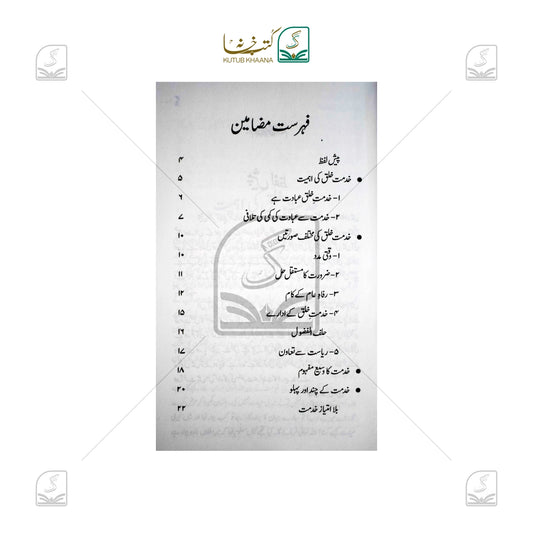 کتب خانہ
KUTUB KHAANA
فہرست مضامین
پیش لفظ ۴
● خدمت خلق کی اہمیت ۵
۱- خدمتِ خلق عبادت ہے ۶
۲- خدمت سے عبادت کی کمی کی تلافی ۷
● خدمت خلق کی مختلف صورتیں ۱۰
۱- وقتی مدد ۱۰
۲- ضرورت کا مستقل حل ۱۱
۳- رفاہِ عام کے کام ۱۲
۴- خدمت خلق کے ادارے ۱۵
حلف الفضول ۱۶
۵- ریاست سے تعاون ۱۷
● خدمت کا وسیع مفہوم ۱۸
● خدمت کے چند اور پہلو ۲۰
بلا امتیاز خدمت ۲۲